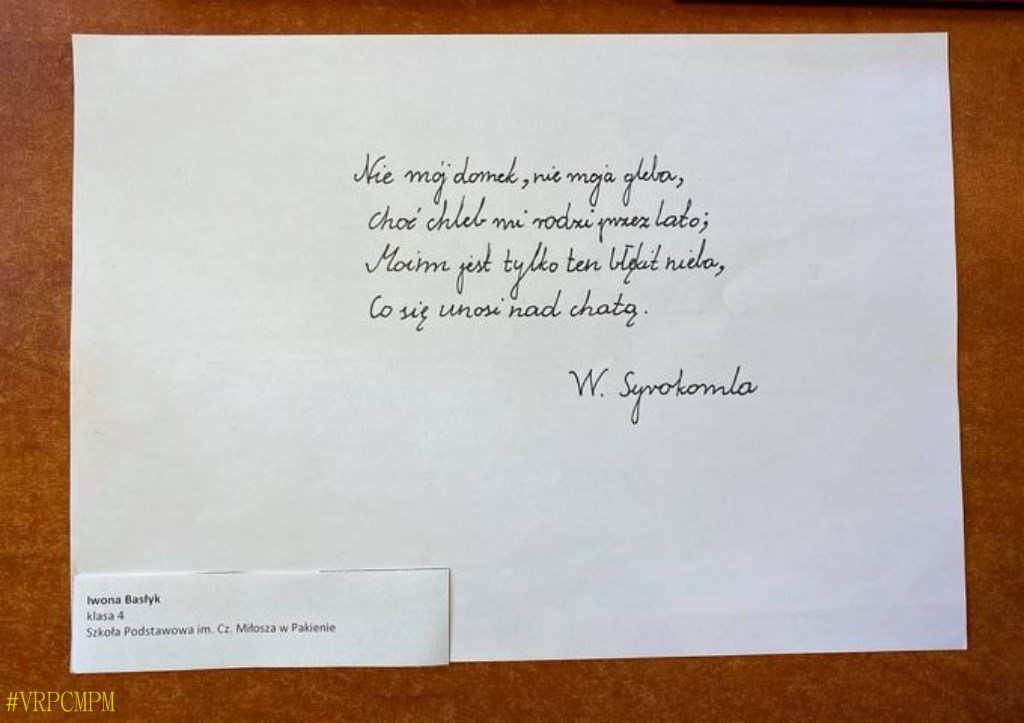 Nie mój domek, nie moja gleba,
choć chleb mi rodzi przez lato;
Moim jest tylko ten błękit nieba,
Co się unosi nad chatą.
W. Syrokomla
Iwona Basłyk
klasa 4
Szkoła Podstawowa im. Cz. Miłosza w Pakienie
#VRPCMPM